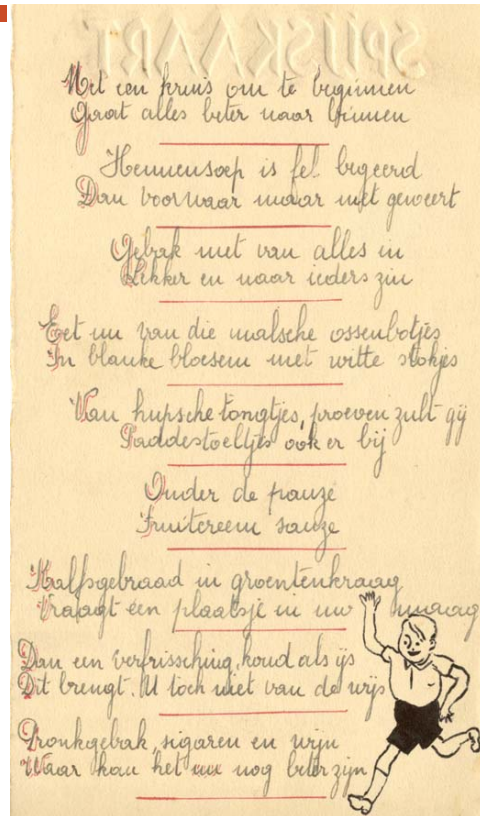 SPIJSKAART
Met een kruis om te beginnen
Gaat alles beter naar binnen
Hennensoep is fel begeerd
Dan voorwaar maar niet geweert
Gebak met van alles in
Lekker en naar ieders zin
Eet nu van die malsche ossenbotjes
In blanke bloesem met witte stokjes
Van hupsche tongtjes, proeven zult gij
Paddestoeltjes ook er bij
Onder de pauze
Fruitcreem sauze
Kalfsgebraad in groentenkraag
Vraagt een plaatsje in uw maag
Dan een verfrissching, koud als ijs
Dit brengt U toch niet van de wijs
Pronkgebak, sigaren en wijn
Waar kan het nog beter zijn